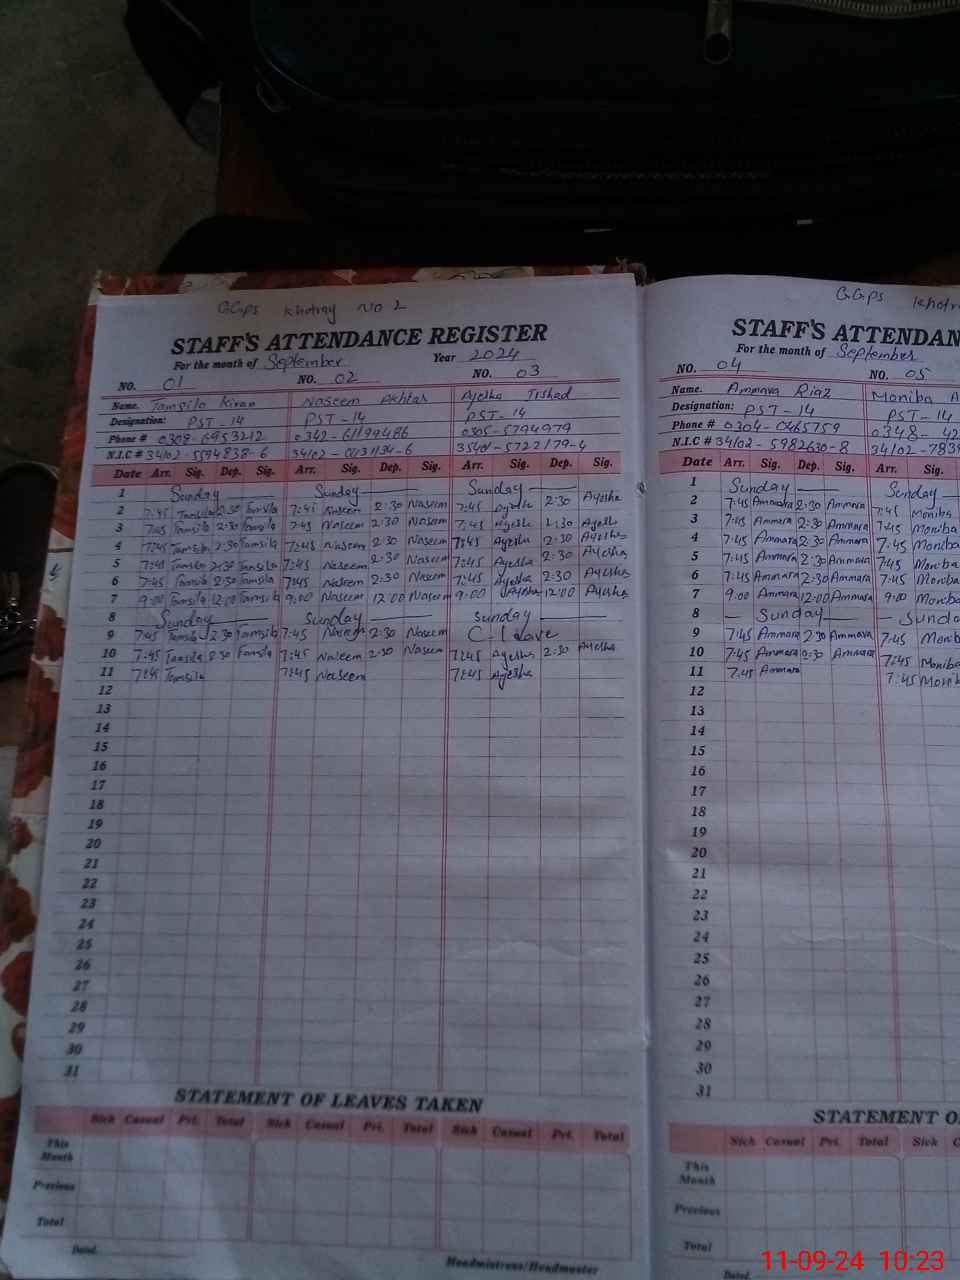 GGPS Khotray No 2
STAFF'S ATTENDANCE REGISTER
For the month of September Year 2024
NO. 01 NO. 02 NO. 03
Name. Tamsila Kiran Naseem Akhtar Ayesha Irshad
Designation: PST-14 PST-14 PST-14
Phone # 0308-6953212 0342-61199486 0305-5794979
N.I.C # 34102-5594838-6
Date Arr. Sig. Dep. Sig. Arr. Sig. Dep. Sig. Arr. Sig. Dep. Sig.
1 Sunday Sunday Sunday
2 7:45 Tamsila 2:30 Tamsila 7:45 Naseem 2:30 Naseem 7:45 Ayesha 2:30 Ayesha
3 7:45 Tamsila 2:30 Tamsila 7:45 Naseem 2:30 Naseem 7:45 Ayesha 2:30 Ayesha
4 7:45 Tamsila 2:30 Tamsila 7:45 Naseem 2:30 Naseem 7:45 Ayesha 2:30 Ayesha
5 7:45 Tamsila 2:30 Tamsila 7:45 Naseem 2:30 Naseem 7:45 Ayesha 2:30 Ayesha
6 7:45 Tamsila 2:30 Tamsila 7:45 Naseem 2:30 Naseem 7:45 Ayesha 2:30 Ayesha
7 9:00 Tamsila 12:00 Tamsila 9:00 Naseem 12:00 Naseem 9:00 Ayesha 12:00 Ayesha
8 Sunday Sunday Sunday
9 7:45 Tamsila 2:30 Tamsila 7:45 Naseem 2:30 Naseem C-Leave
10 7:45 Tamsila 2:30 Tamsila 7:45 Naseem 2:30 Naseem 7:45 Ayesha 2:30 Ayesha
11 7:45 Tamsila 7:45 Naseem 7:45 Ayesha
12
13
14
15
16
17
18
19
20
21
22
23
24
25
26
27
28
29
30
31
STATEMENT OF LEAVES TAKEN
Sick Casual Pri. Total Sick Casual Pri. Total Sick Casual Pri. Total
This Month
Previous
Total
Dated. Headmistress/Headmaster
GGPS Khotra
STAFF'S ATTENDAN
For the month of September
NO. 04 NO. 05
Name. Ammara Riaz Moniba A
Designation: PST-14 PST-14
Phone # 0304-0465759 0348-42
N.I.C # 34102-5982630-8 34102-7839
Date Arr. Sig. Dep. Sig. Arr. Sig.
1 Sunday Sunday
2 7:45 Ammara 2:30 Ammara 7:45 Moniba
3 7:45 Ammara 2:30 Ammara 7:45 Moniba
4 7:45 Ammara 2:30 Ammara 7:45 Moniba
5 7:45 Ammara 2:30 Ammara 7:45 Moniba
6 7:45 Ammara 2:30 Ammara 7:45 Moniba
7 9:00 Ammara 12:00 Ammara 9:00 Moniba
8 Sunday Sunda
9 7:45 Ammara 2:30 Ammara 7:45 Monib
10 7:45 Ammara 2:30 Ammara 7:45 Moniba
11 7:45 Ammara 7:45 Monib
12
13
14
15
16
17
18
19
20
21
22
23
24
25
26
27
28
29
30
31
STATEMENT O
Sick Casual Pri. Total Sick C
This Month
Previous
Total
Dated.
11-09-24 10:23